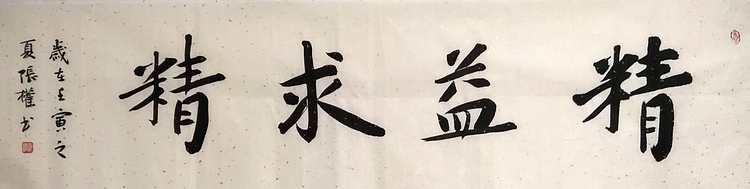 精益求精
歲在壬寅之
夏張權书